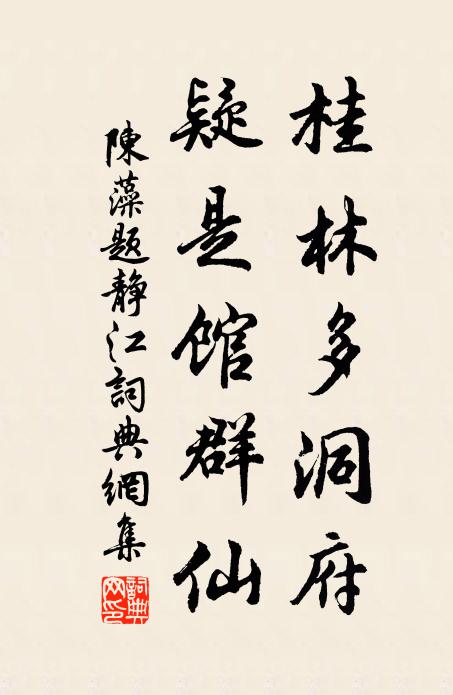 桂林多洞府
疑是馆群仙
陳藻题靜江詞典網集
詞典网印